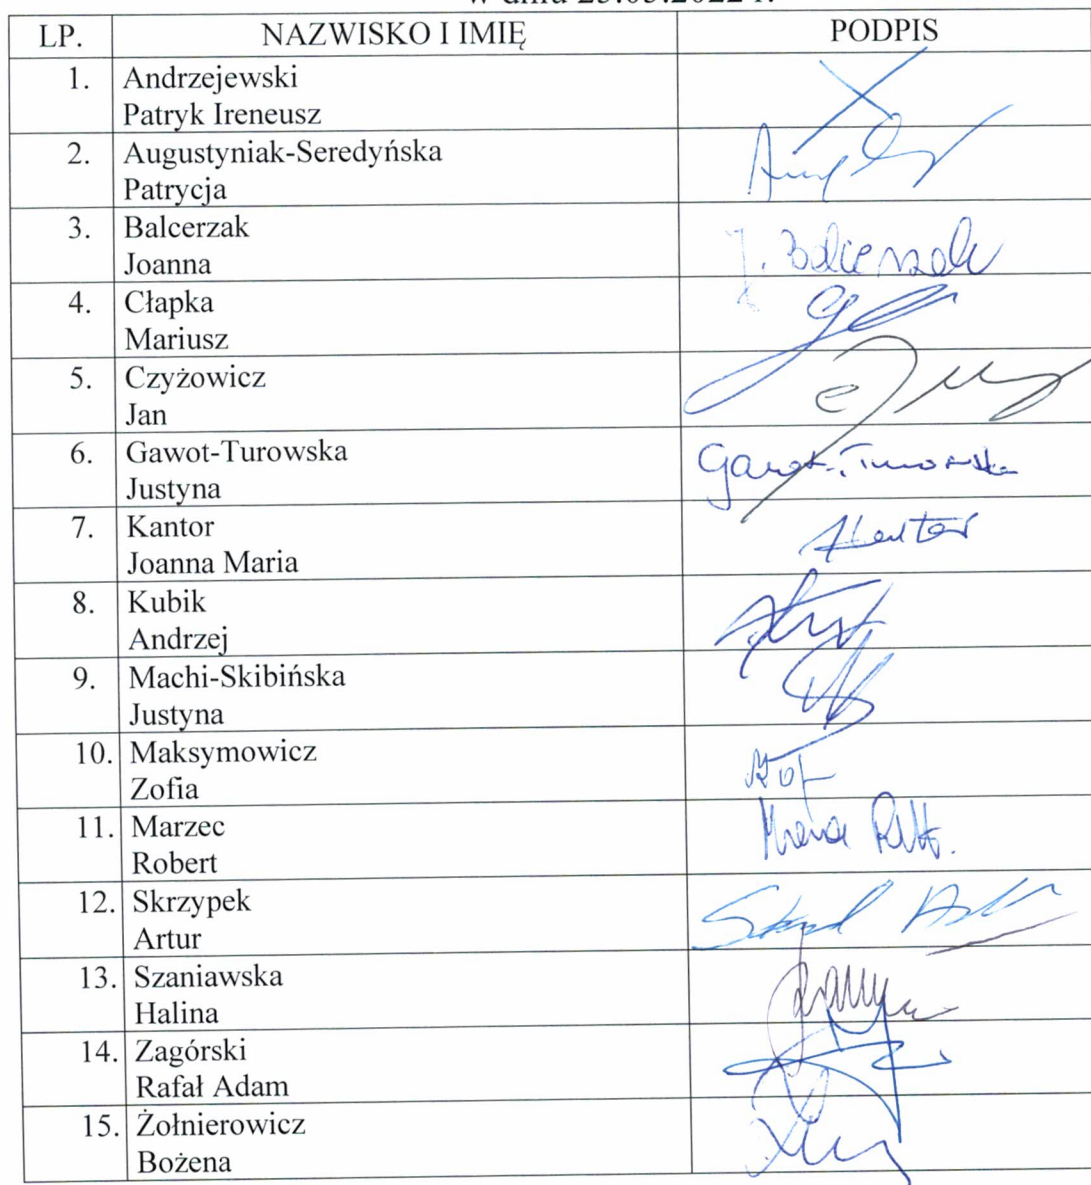 LP. NAZWISKO I IMIĘ PODPIS
1. Andrzejewski
Patryk Ireneusz
2. Augustyniak-Seredyńska
Patrycja
3. Balcerzak
Joanna
J. Balcerzak
4. Cłapka
Mariusz
5. Czyżowicz
Jan
6. Gawot-Turowska
Justyna
Gawot-Turowska
7. Kantor
Joanna Maria
8. Kubik
Andrzej
9. Machi-Skibińska
Justyna
10. Maksymowicz
Zofia
11. Marzec
Robert
12. Skrzypek
Artur
13. Szaniawska
Halina
14. Zagórski
Rafał Adam
15. Żołnierowicz
Bożena